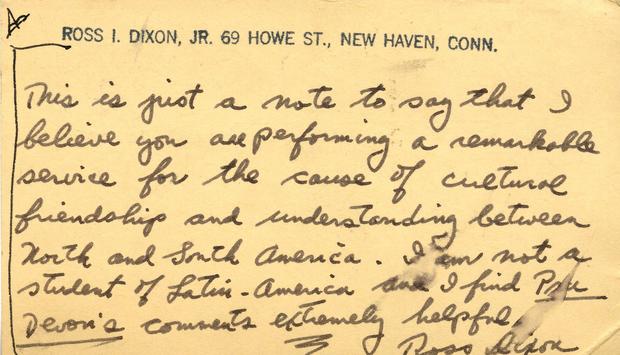 ROSS I. DIXON, JR. 69 HOWE ST., NEW HAVEN, CONN.
This is just a note to say that I
believe you are performing a remarkable
service for the cause of cultural
friendship and understanding between
North and South America. I am not a
student of Latin-America and I find
Devon's comments extremely helpful.
Ross Dixon